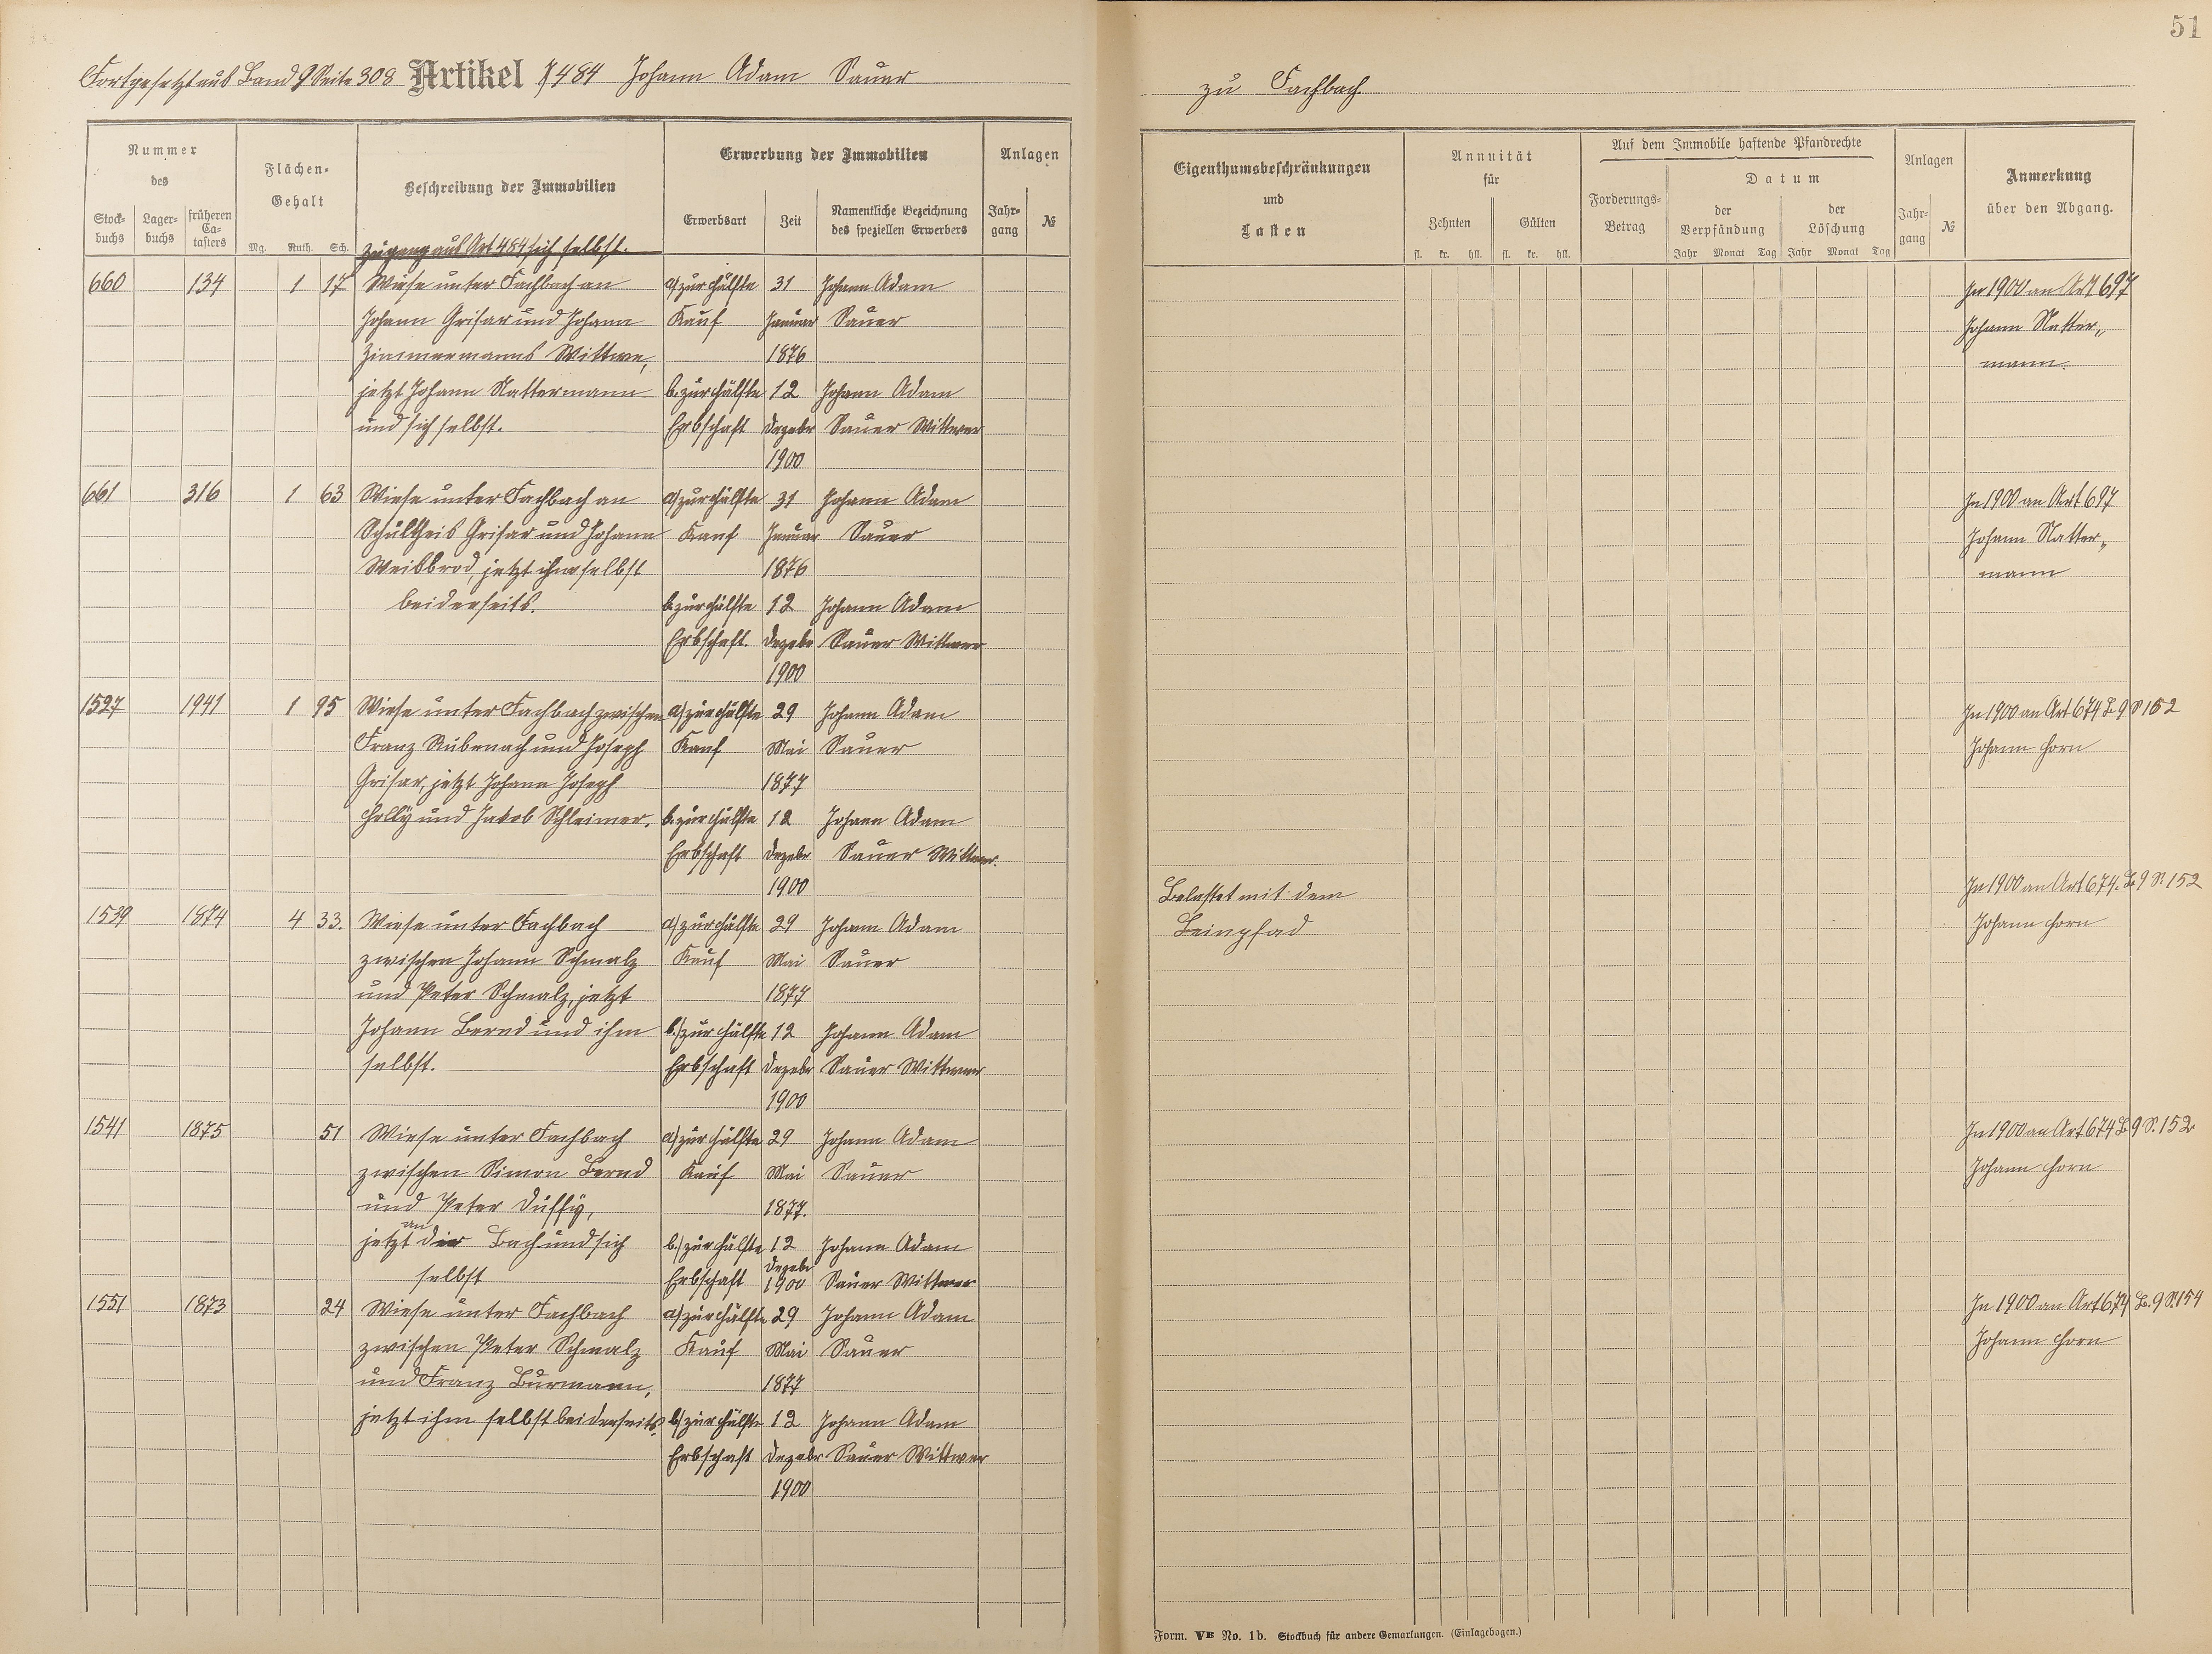 51
Fortgesetzt aus Band 9 Seite 308 Artikel 484 Johann Adam Sauer
zu Fachbach
Nummer
des
Stock-
buchs
Lager-
buchs
früheren
Ca-
tasters
Flächen-
Gehalt
Mg. Ruth. Sch.
Beschreibung der Immobilien
Zugang aus Art 484 sich selbst.
Erwerbung der Immobilien
Erwerbsart
Zeit
Namentliche Bezeichnung
des speziellen Erwerbers
Anlagen
Jahr-
gang
№
Eigenthumsbeschränkungen
und
Lasten
Annuität
für
Zehnten
Gülten
fl. kr. hll. fl. kr. hll.
Auf dem Immobile haftende Pfandrechte
Forderungs-
Betrag
Datum
der
Verpfändung
der
Löschung
Jahr Monat Tag Jahr Monat Tag
Anlagen
Jahr-
gang
№
Anmerkung
über den Abgang.
660 134 1 17 Wiese unter Fachbach an a) zur Hälfte 31 Johann Adam In 1900 an Art 697
Johann Grisar und Johann Kauf Januar Sauer Johann Natter„
Zimmermanns Wittwe, 1876 mann.
jetzt Johann Nattermann b. zur Hälfte 12 Johann Adam
und sich selbst. Erbschaft Dezebr Sauer Wittwer
1900
661 316 1 63 Wiese unter Fachbach an a) zur Hälfte 31 Johann Adam In 1900 an Art 697
Schultheis Grisar und Johann Kauf Januar Sauer Johann Natter„
Weisbrod, jetzt ihm selbst 1876 mann
beiderseits. b. zur Hälfte 12 Johann Adam
Erbschaft. Dezebr Sauer Wittwer
1900
1527 1941 1 95 Wiese unter Fachbach zwischen a) zur Hälfte 29 Johann Adam In 1900 an Art 674 B 9 S 152
Franz Rübenach und Joseph Kauf Mai Sauer Johann Horn
Grisar, jetzt Johann Joseph 1877
Holly und Jakob Schleimer. b. zur Hälfte 12 Johann Adam
Erbschaft Dezebr Sauer Wittwer.
1900
1539 1874 4 33. Wiese unter Fachbach a) zur Hälfte 29 Johann Adam Belastet mit dem In 1900 an Art 674. B 9 S. 152
zwischen Johann Schmalz Kauf Mai Sauer Leinpfad Johann Horn
und Peter Schmalz, jetzt 1877
Johann Bernd und ihm b.) zur Hälfte 12 Johann Adam
selbst. Erbschaft Dezebr Sauer Wittwer
1900
1541 1875 51 Wiese unter Fachbach a) zur Hälfte 29 Johann Adam In 1900 an Art 674 B 9 S. 152
zwischen Simon Bernd Kauf Mai Sauer Johann Horn
und Peter Duffy, 1877.
jetzt an der Bach und sich b.) zur Hälfte 12 Johann Adam
selbst Erbschaft Dezebr 1900 Sauer Wittwer
1551 1873 24 Wiese unter Fachbach a) zur Hälfte 29 Johann Adam In 1900 an Art 674 B. 9 S. 154
zwischen Peter Schmalz Kauf Mai Sauer Johann Horn
und Franz Burmann, 1877
jetzt ihm selbst beiderseits. b) zur Hälfte 12 Johann Adam
Erbschaft Dezebr Sauer Wittwer
1900
Form. VB No. 1b. Stockbuch für andere Gemarkungen. (Einlagebogen.)